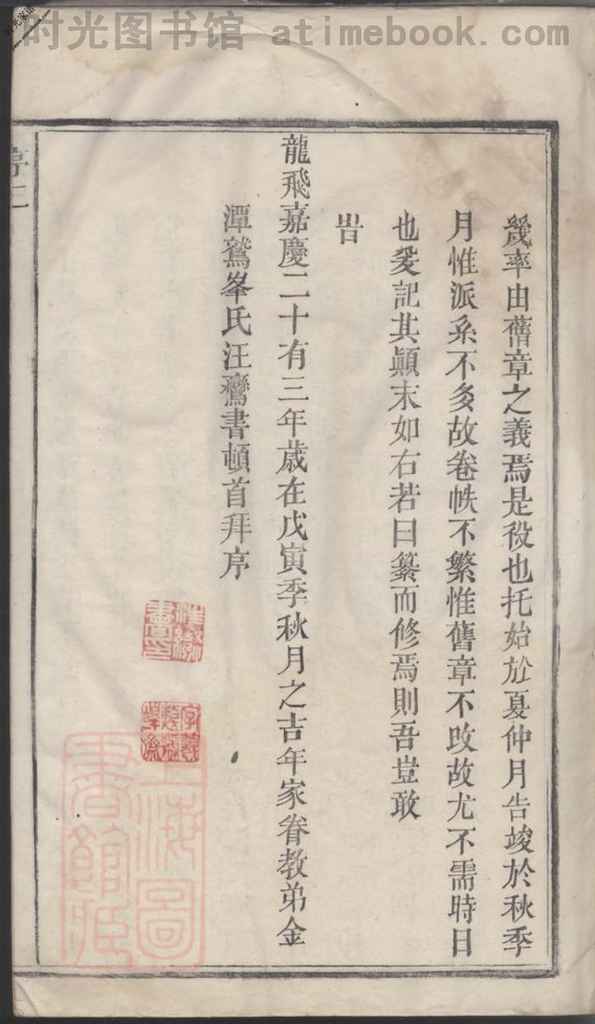 时光图书馆 atimebook.com
幾率由舊章之義焉是役也托始於夏仲月告竣於秋季
月惟派系不多故卷帙不繁惟舊章不改故尤不需時日
也爰記其顚末如右若曰纂而修焉則吾豈敢
旹
龍飛嘉慶二十有三年歲在戊寅季秋月之吉年家眷教弟金
潭鷲峯氏汪鷟書頓首拜序
上海圖
書館藏